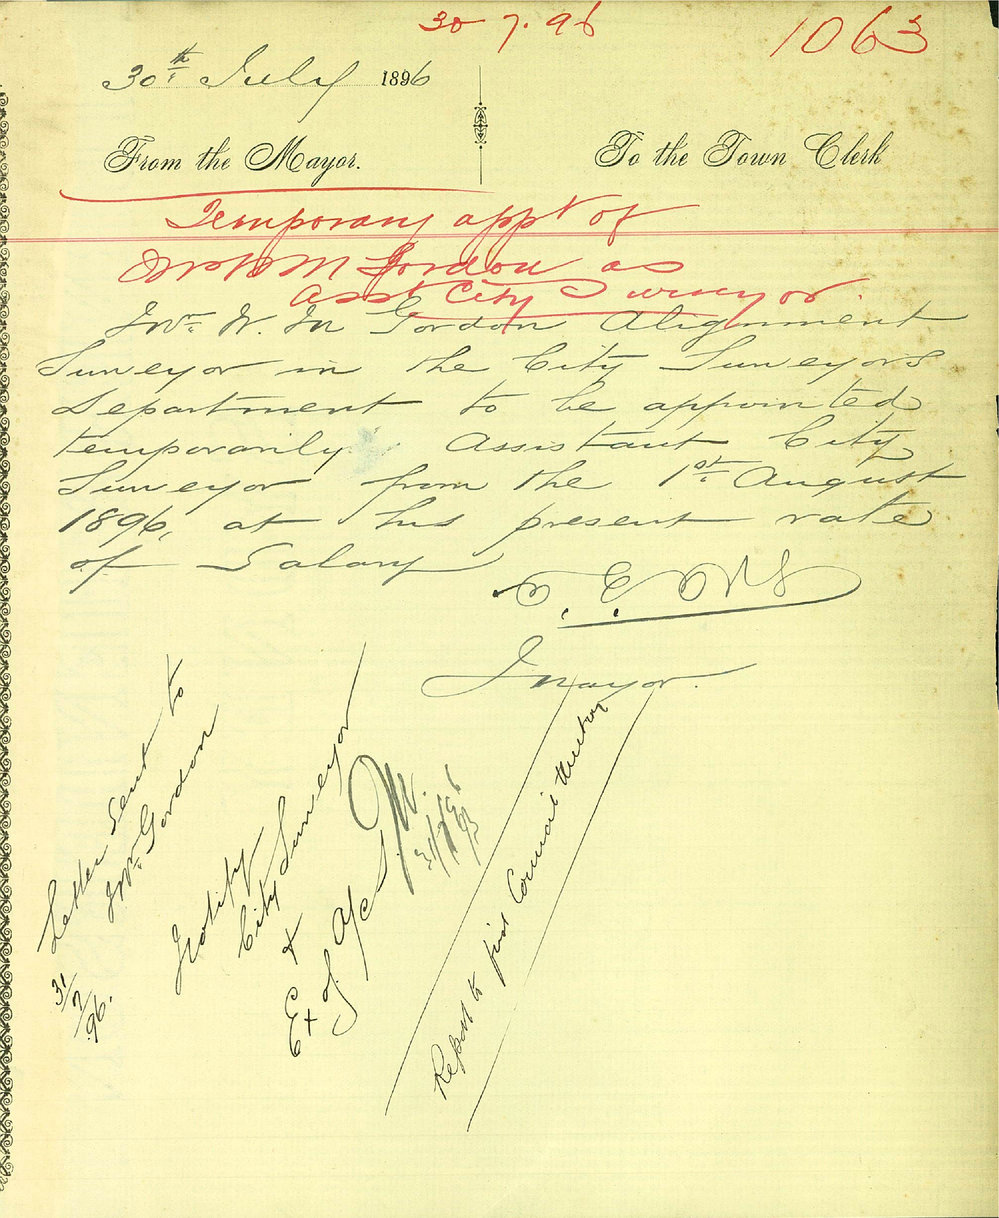 30.7.96
1063
30th July 1896
From the Mayor.
To the Town Clerk
Temporary appt of
Mr W M Gordon as
Asst City Surveyor.
Mr. W. M Gordon Alignment
Surveyor in the City Surveyors
Department to be appointed
temporarily Assistant City
Surveyor from the 1st August
1896, at his present rate
of Salary
Mayor.
Letter sent to
Mr. Gordon
31/7/96.
Notify
City Surveyor
+
Ex of A/cs
31/7/96
Report to first Council Meeting